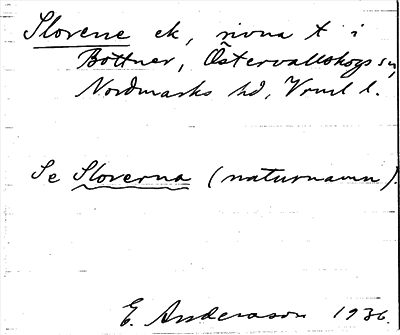 Slorene ek, rivna t i
Bottner, Östervallskogs sn,
Nordmarks hd, Vrml l.
Se Sloverna (naturnamn).
E. Anderson 1936.